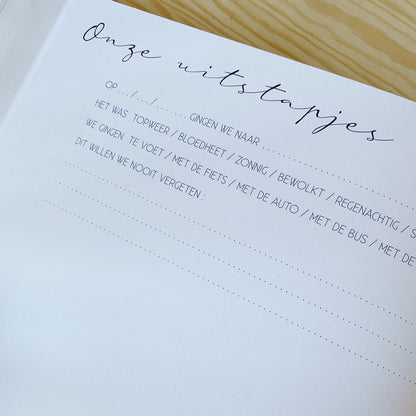 Onze uitstapjes
OP .../.../....... GINGEN WE NAAR ..............................
HET WAS TOPWEER / BLOEDHEET / ZONNIG / BEWOLKT / REGENACHTIG / S
WE GINGEN TE VOET / MET DE FIETS / MET DE AUTO / MET DE BUS / MET DE
DIT WILLEN WE NOOIT VERGETEN :